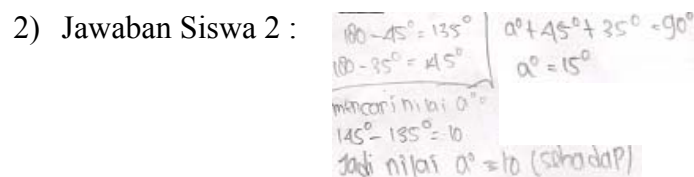 2) Jawaban Siswa 2 :
180 - 45° = 135°
180 - 35° = 145°
a° + 45° + 35° = 90°
a° = 15°
mencari nilai a° =
145° - 135° = 10
Jadi nilai a° = 10